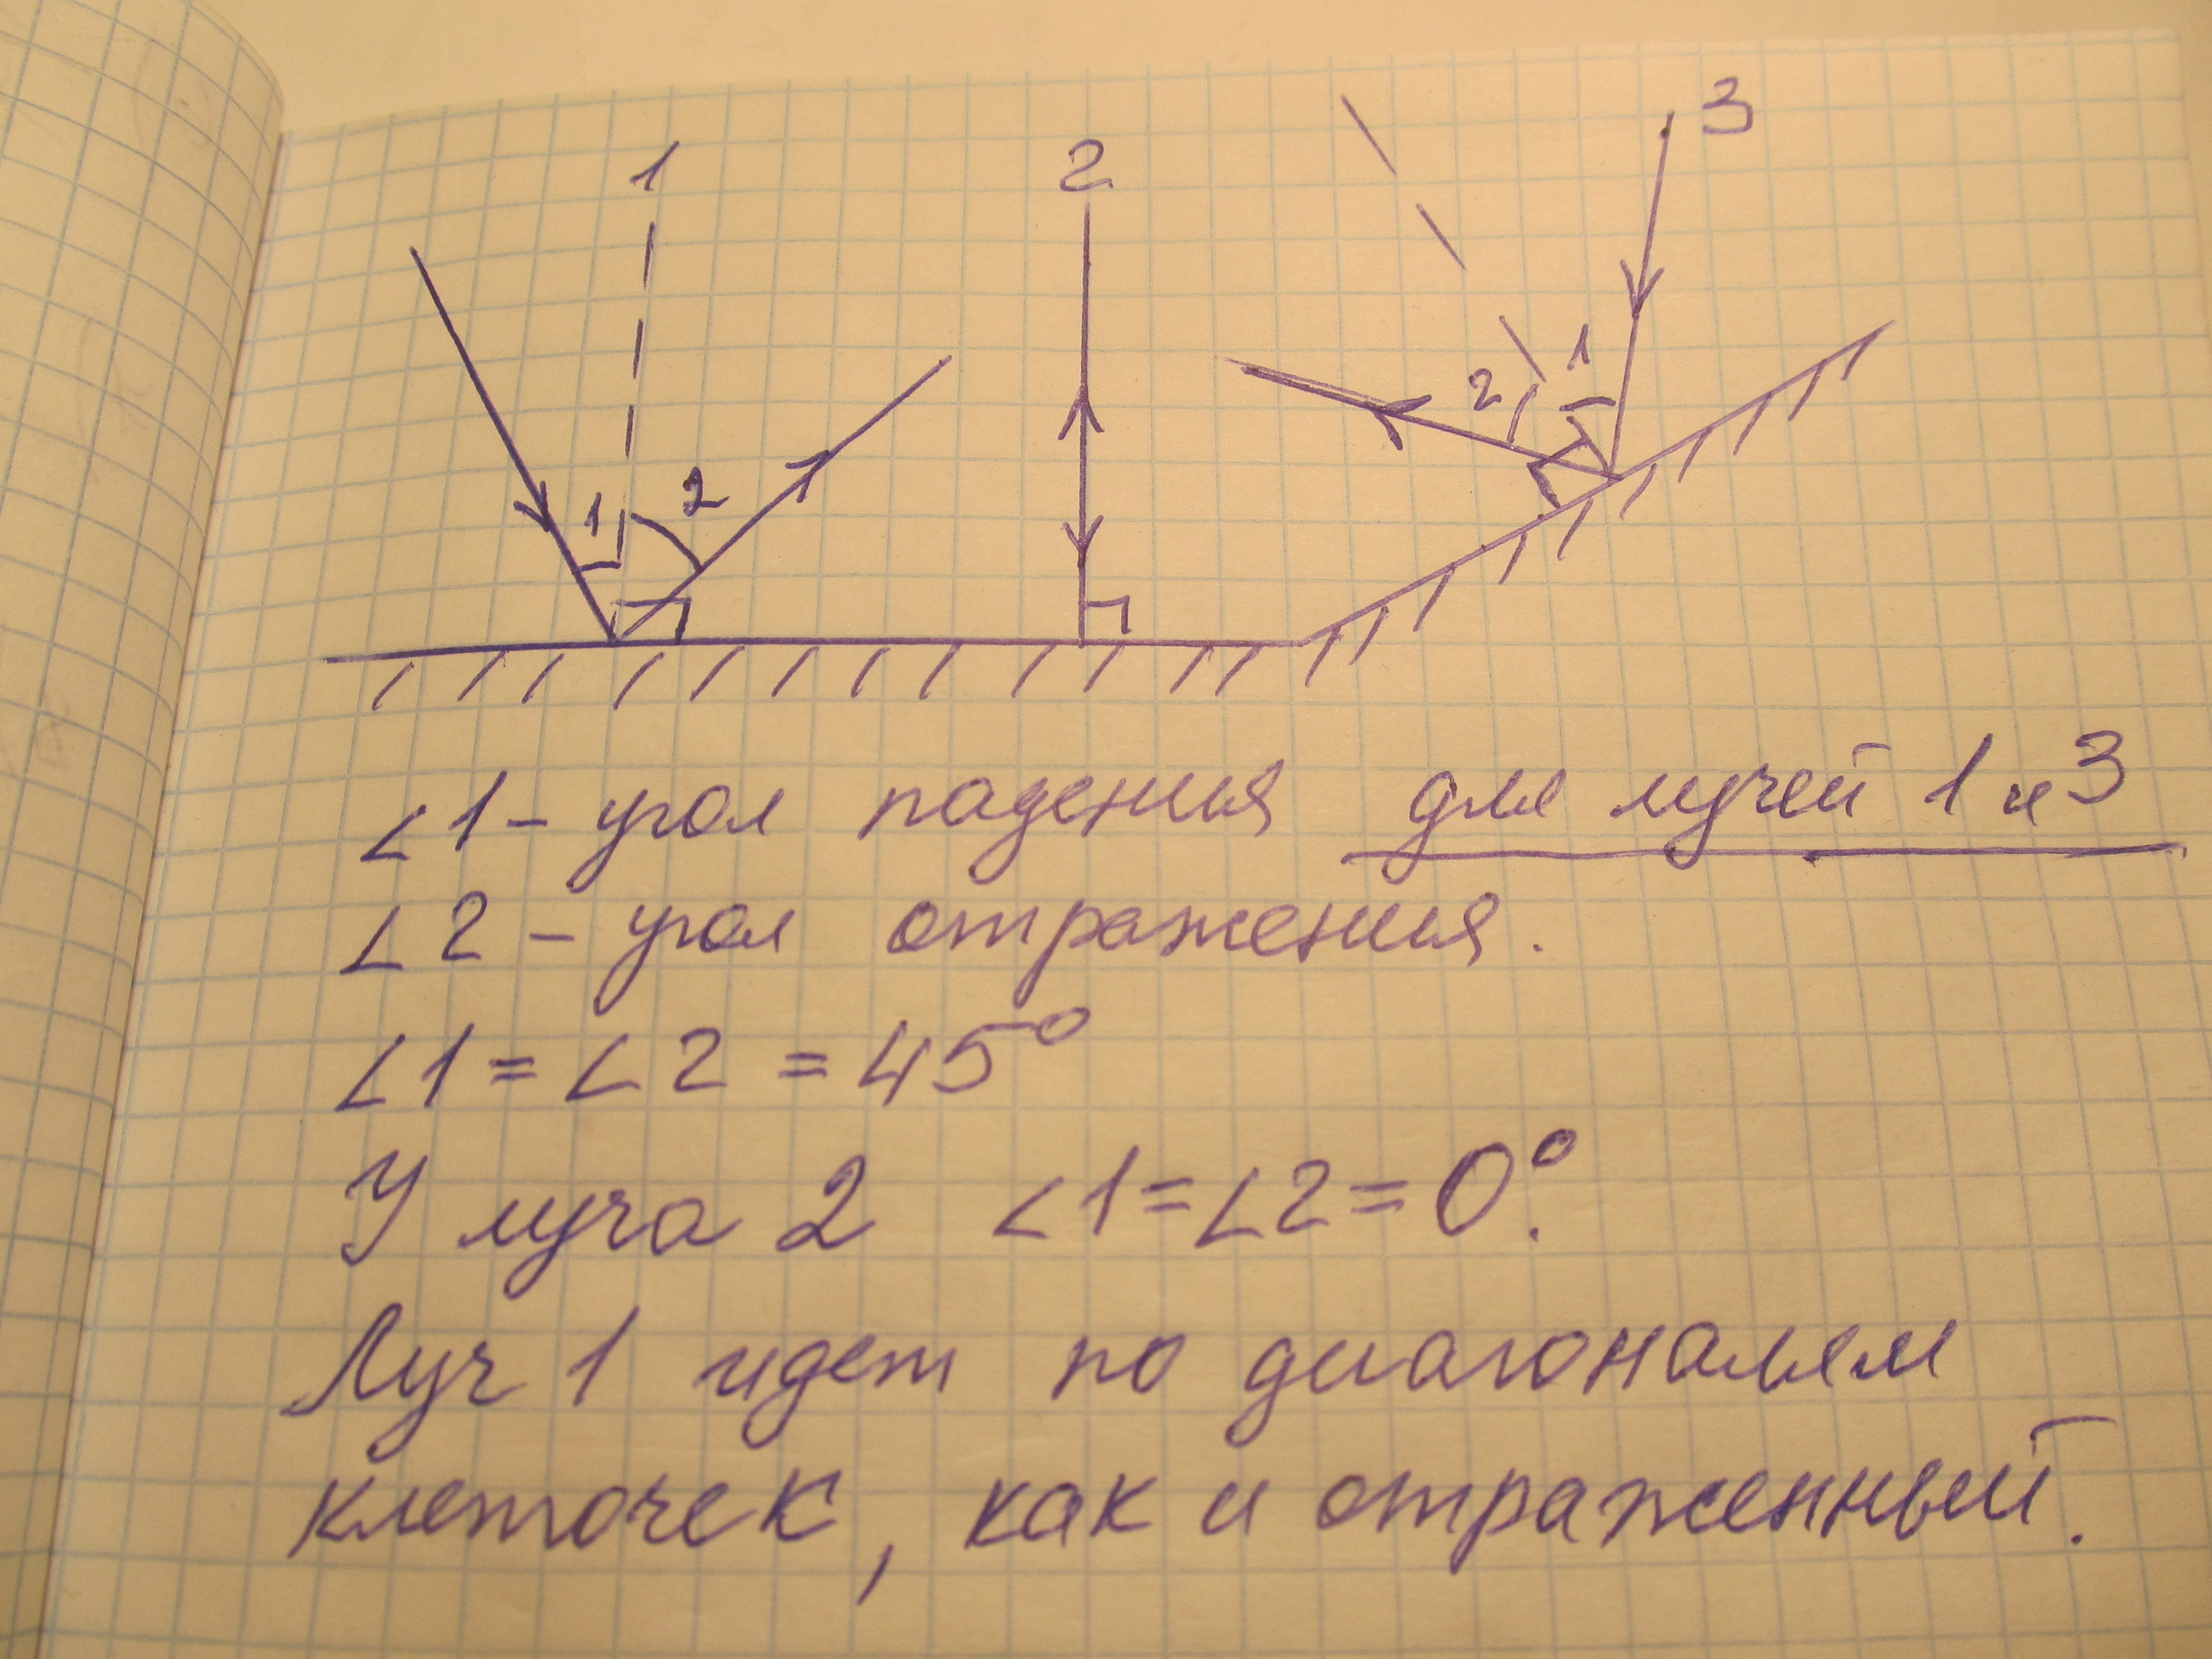 1 2 3
1 2
2 1
∠1 - угол падения для лучей 1 и 3
∠2 - угол отражения.
∠1 = ∠2 = 45°
У луча 2 ∠1 = ∠2 = 0°.
Луч 1 идет по диагоналям
клеточек, как и отраженный.